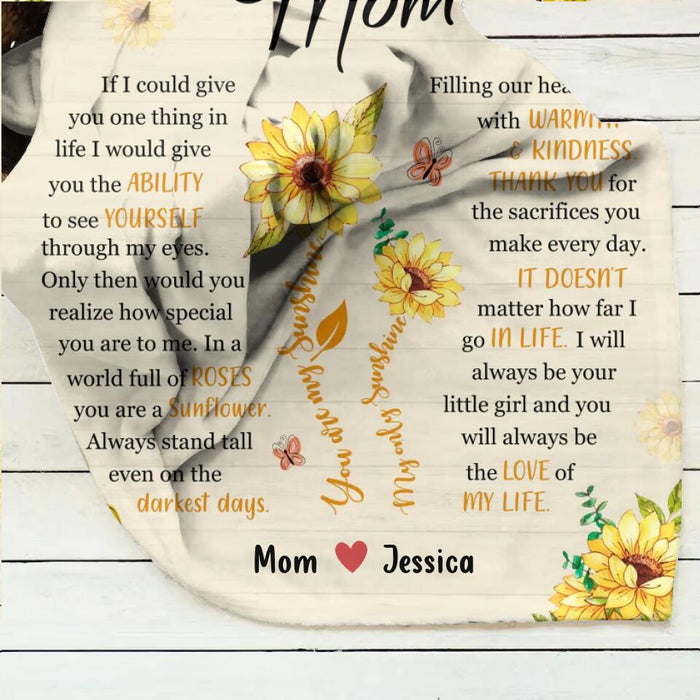 Mom
If I could give
you one thing in
life I would give
you the ABILITY
to see YOURSELF
through my eyes.
Only then would you
realize how special
you are to me. In a
world full of ROSES
you are a Sunflower.
Always stand tall
even on the
darkest days.
You are my Sunshine
My only Sunshine
Filling our
with WARMTH
& KINDNESS.
THANK YOU for
the sacrifices you
make every day.
IT DOESN'T
matter how far I
go IN LIFE. I will
always be your
little girl and you
will always be
the LOVE of
MY LIFE.
Mom Jessica